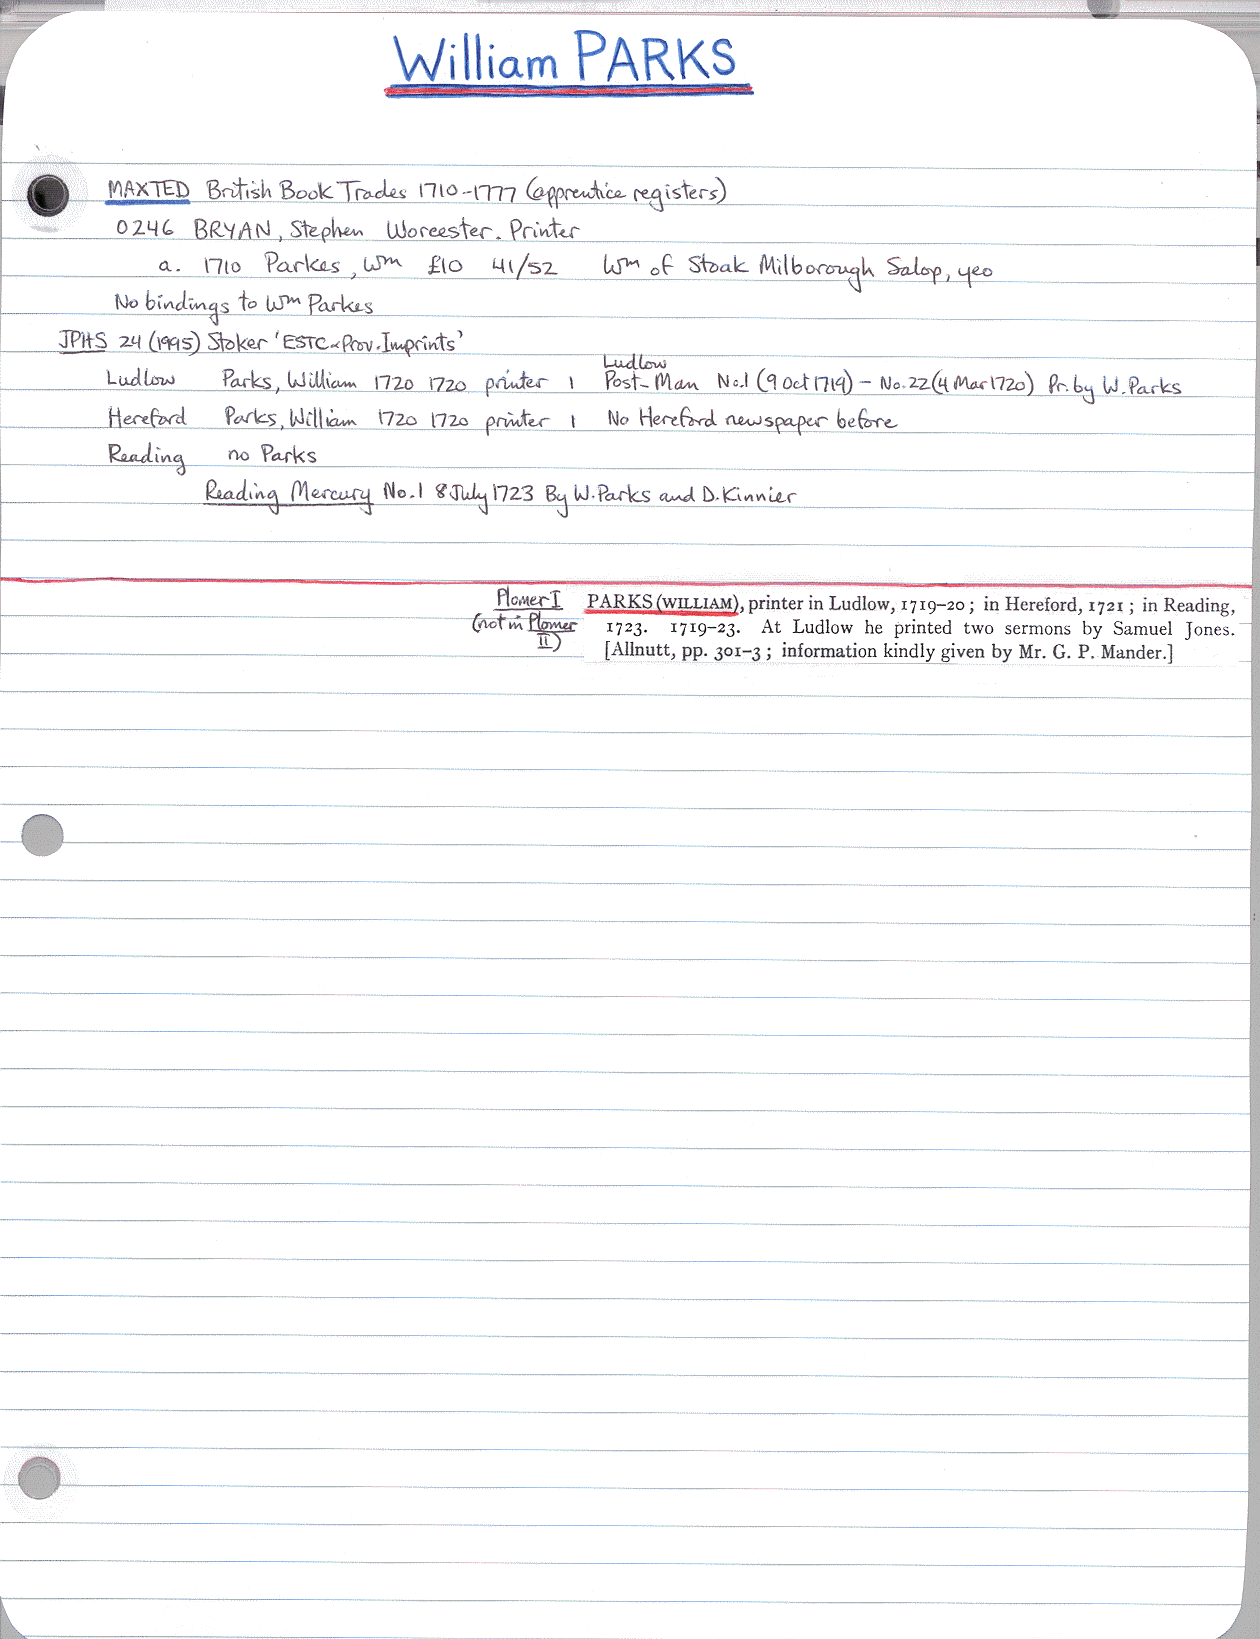 William PARKS
MAXTED British Book Trades 1710-1777 (apprentice registers)
0246 BRYAN, Stephen Worcester. Printer
a. 1710 Parkes, Wm £10 41/52 Wm of Stoak Milborough Salop, yeo
No bindings to Wm Parkes
JPHS 24 (1995) Stoker 'ESTC & Prov. Imprints'
Ludlow
Ludlow Parks, William 1720 1720 printer 1 Post-Man No.1 (9 Oct 1719) - No. 22 (4 Mar 1720) Pr. by W. Parks
Hereford Parks, William 1720 1720 printer 1 No Hereford newspaper before
Reading no Parks
Reading Mercury No.1 8 July 1723 By W. Parks and D. Kinnier
Plomer I
(not in Plomer
II)
PARKS (WILLIAM), printer in Ludlow, 1719–20; in Hereford, 1721; in Reading,
1723. 1719–23. At Ludlow he printed two sermons by Samuel Jones.
[Allnutt, pp. 301–3; information kindly given by Mr. G. P. Mander.]